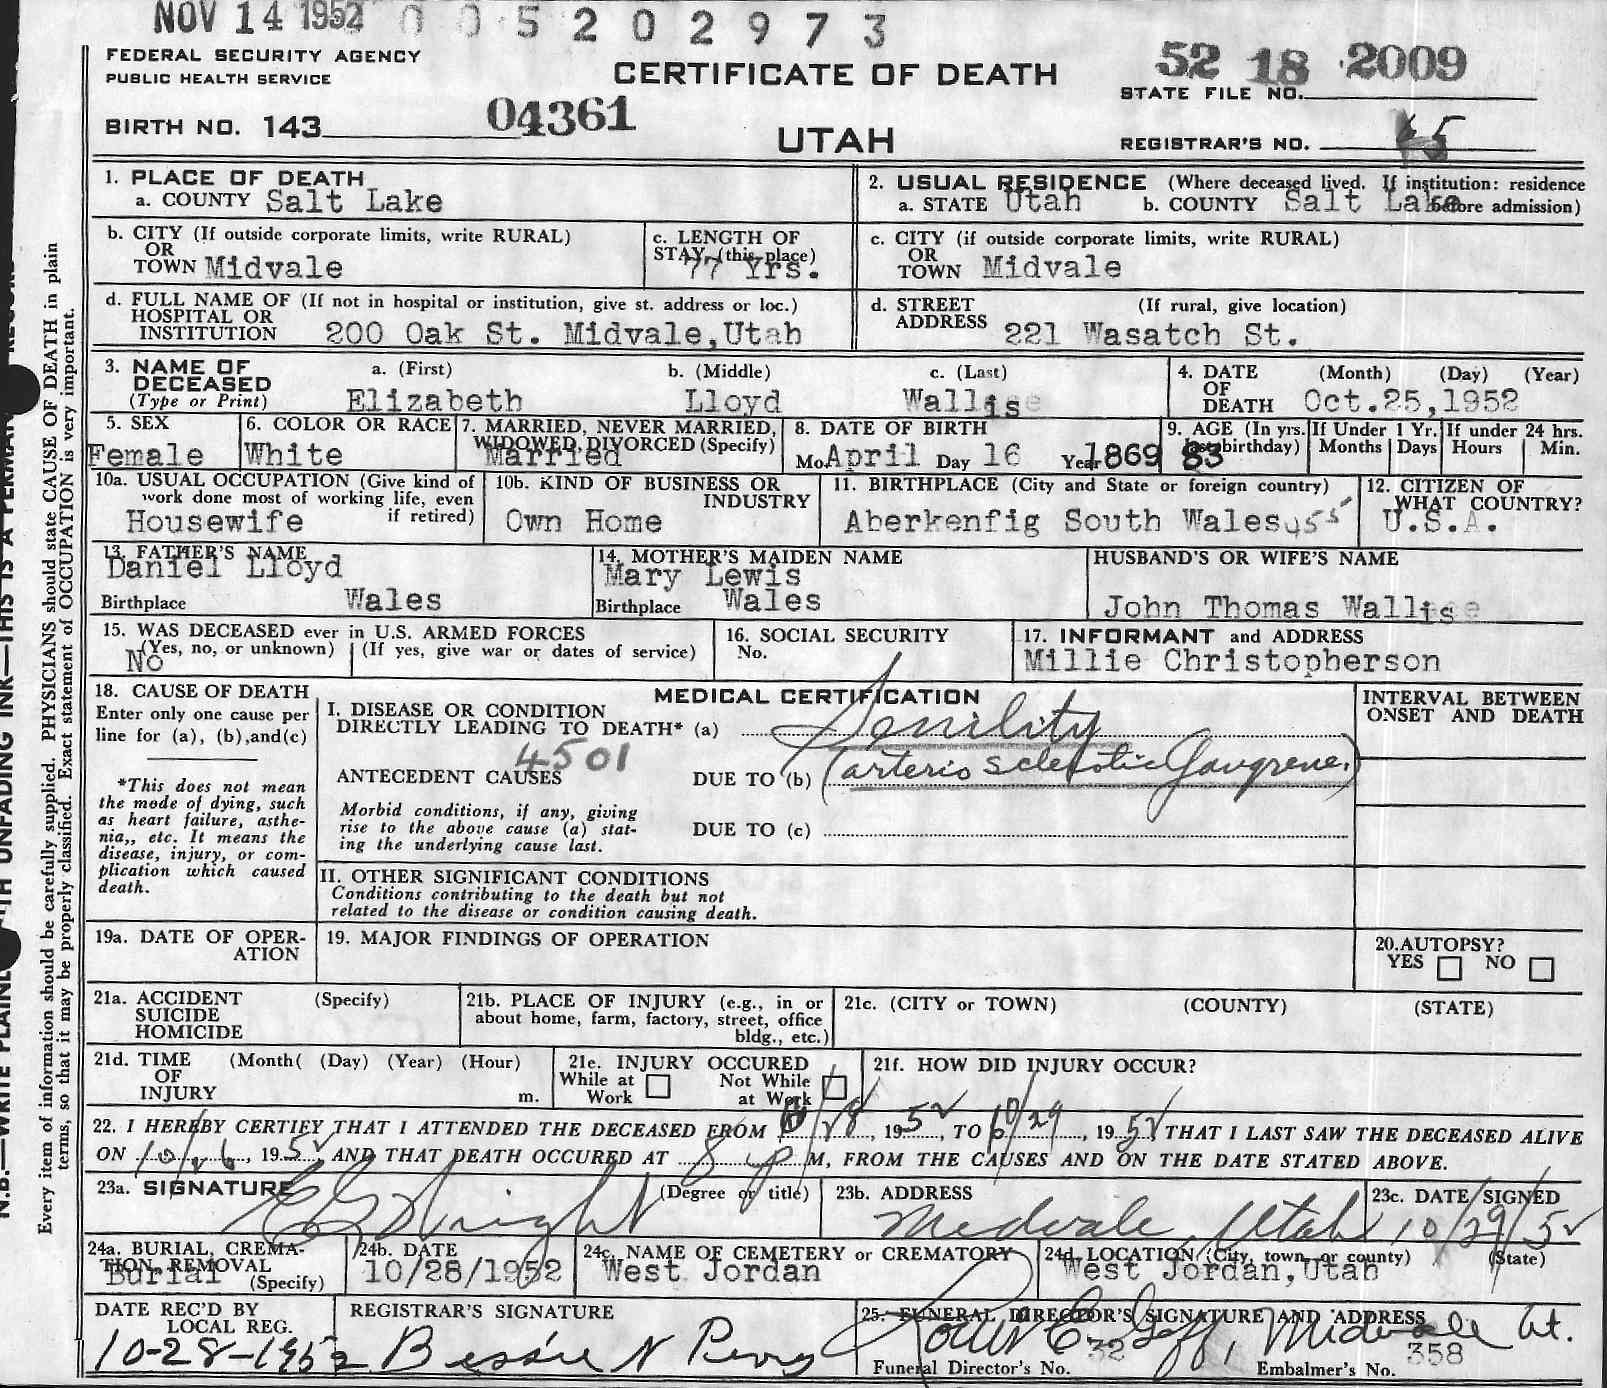 NOV 14 1952 0 0 5 2 0 2 9 7 3
FEDERAL SECURITY AGENCY
PUBLIC HEALTH SERVICE
CERTIFICATE OF DEATH
52 18 2009
STATE FILE NO.
BIRTH NO. 143 04361
UTAH
REGISTRAR'S NO. 65
1. PLACE OF DEATH
a. COUNTY Salt Lake
2. USUAL RESIDENCE (Where deceased lived. If institution: residence before admission)
a. STATE Utah b. COUNTY Salt Lake
b. CITY (If outside corporate limits, write RURAL)
OR
TOWN Midvale
c. LENGTH OF
STAY (this place)
77 Yrs.
c. CITY (if outside corporate limits, write RURAL)
OR
TOWN Midvale
d. FULL NAME OF (If not in hospital or institution, give st. address or loc.)
HOSPITAL OR
INSTITUTION 200 Oak St. Midvale,Utah
d. STREET (If rural, give location)
ADDRESS 221 Wasatch St.
3. NAME OF
DECEASED
(Type or Print)
a. (First) b. (Middle) c. (Last)
Elizabeth Lloyd Wallis
4. DATE (Month) (Day) (Year)
OF
DEATH Oct.25,1952
5. SEX
Female
6. COLOR OR RACE
White
7. MARRIED, NEVER MARRIED,
WIDOWED, DIVORCED (Specify)
Married
8. DATE OF BIRTH
Mo. April Day 16 Year 1869
9. AGE (In yrs. last birthday) 83
If Under 1 Yr. Months Days
If under 24 hrs. Hours Min.
10a. USUAL OCCUPATION (Give kind of
work done most of working life, even
if retired)
Housewife
10b. KIND OF BUSINESS OR
INDUSTRY
Own Home
11. BIRTHPLACE (City and State or foreign country)
Aberkenfig South Wales 955
12. CITIZEN OF
WHAT COUNTRY?
U.S.A.
13. FATHER'S NAME
Daniel Lloyd
Birthplace Wales
14. MOTHER'S MAIDEN NAME
Mary Lewis
Birthplace Wales
HUSBAND'S OR WIFE'S NAME
John Thomas Wallis
15. WAS DECEASED ever in U.S. ARMED FORCES
(Yes, no, or unknown) (If yes, give war or dates of service)
No
16. SOCIAL SECURITY
No.
17. INFORMANT and ADDRESS
Millie Christopherson
18. CAUSE OF DEATH
Enter only one cause per
line for (a), (b),and(c)
*This does not mean
the mode of dying, such
as heart failure, asthe-
nia,, etc. It means the
disease, injury, or com-
plication which caused
death.
MEDICAL CERTIFICATION
I. DISEASE OR CONDITION
DIRECTLY LEADING TO DEATH* (a) Senility
4501
ANTECEDENT CAUSES DUE TO (b) (arterio sclerotic Gangrene.)
Morbid conditions, if any, giving
rise to the above cause (a) stat-
ing the underlying cause last.
DUE TO (c)
II. OTHER SIGNIFICANT CONDITIONS
Conditions contributing to the death but not
related to the disease or condition causing death.
INTERVAL BETWEEN
ONSET AND DEATH
19a. DATE OF OPER-
ATION
19. MAJOR FINDINGS OF OPERATION
20.AUTOPSY?
YES NO
21a. ACCIDENT (Specify)
SUICIDE
HOMICIDE
21b. PLACE OF INJURY (e.g., in or
about home, farm, factory, street, office
bldg., etc.)
21c. (CITY or TOWN) (COUNTY) (STATE)
21d. TIME (Month( (Day) (Year) (Hour)
OF
INJURY m.
21e. INJURY OCCURED
While at Work Not While at Work
21f. HOW DID INJURY OCCUR?
22. I HEREBY CERTIFY THAT I ATTENDED THE DECEASED FROM /28, 1952, TO 10/29, 1952 THAT I LAST SAW THE DECEASED ALIVE
ON 10/26, 1952 AND THAT DEATH OCCURED AT 8 p M, FROM THE CAUSES AND ON THE DATE STATED ABOVE.
23a. SIGNATURE (Degree or title)
Wright
23b. ADDRESS
Midvale, Utah
23c. DATE SIGNED
10/29/52
24a. BURIAL, CREMA-
TION, REMOVAL
(Specify)
Burial
24b. DATE
10/28/1952
24c. NAME OF CEMETERY or CREMATORY
West Jordan
24d. LOCATION (City, town, or county) (State)
West Jordan,Utah
DATE REC'D BY
LOCAL REG.
10-28-1952
REGISTRAR'S SIGNATURE
Bessie N Perry
25. FUNERAL DIRECTOR'S SIGNATURE AND ADDRESS
Goff, Midvale Ut.
Funeral Director's No. 32 Embalmer's No. 358
N.B.—WRITE PLAINLY WITH UNFADING INK—THIS IS A PERMANENT RECORD
Every item of information should be carefully supplied. PHYSICIANS should state CAUSE OF DEATH in plain
terms, so that it may be properly classified. Exact statement of OCCUPATION is very important.